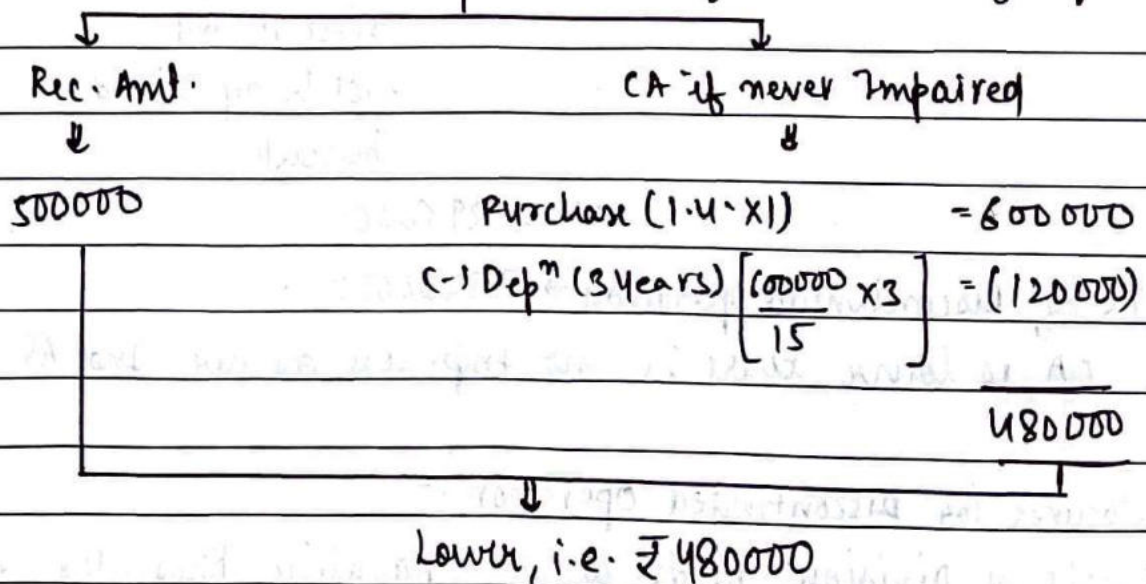 Rec. Amt. CA if never Impaired
500000 Purchase (1.4.X1) = 600000
(-) Depⁿ (3 years) [600000/15 x3] = (120000)
480000
Lower, i.e. ₹480000